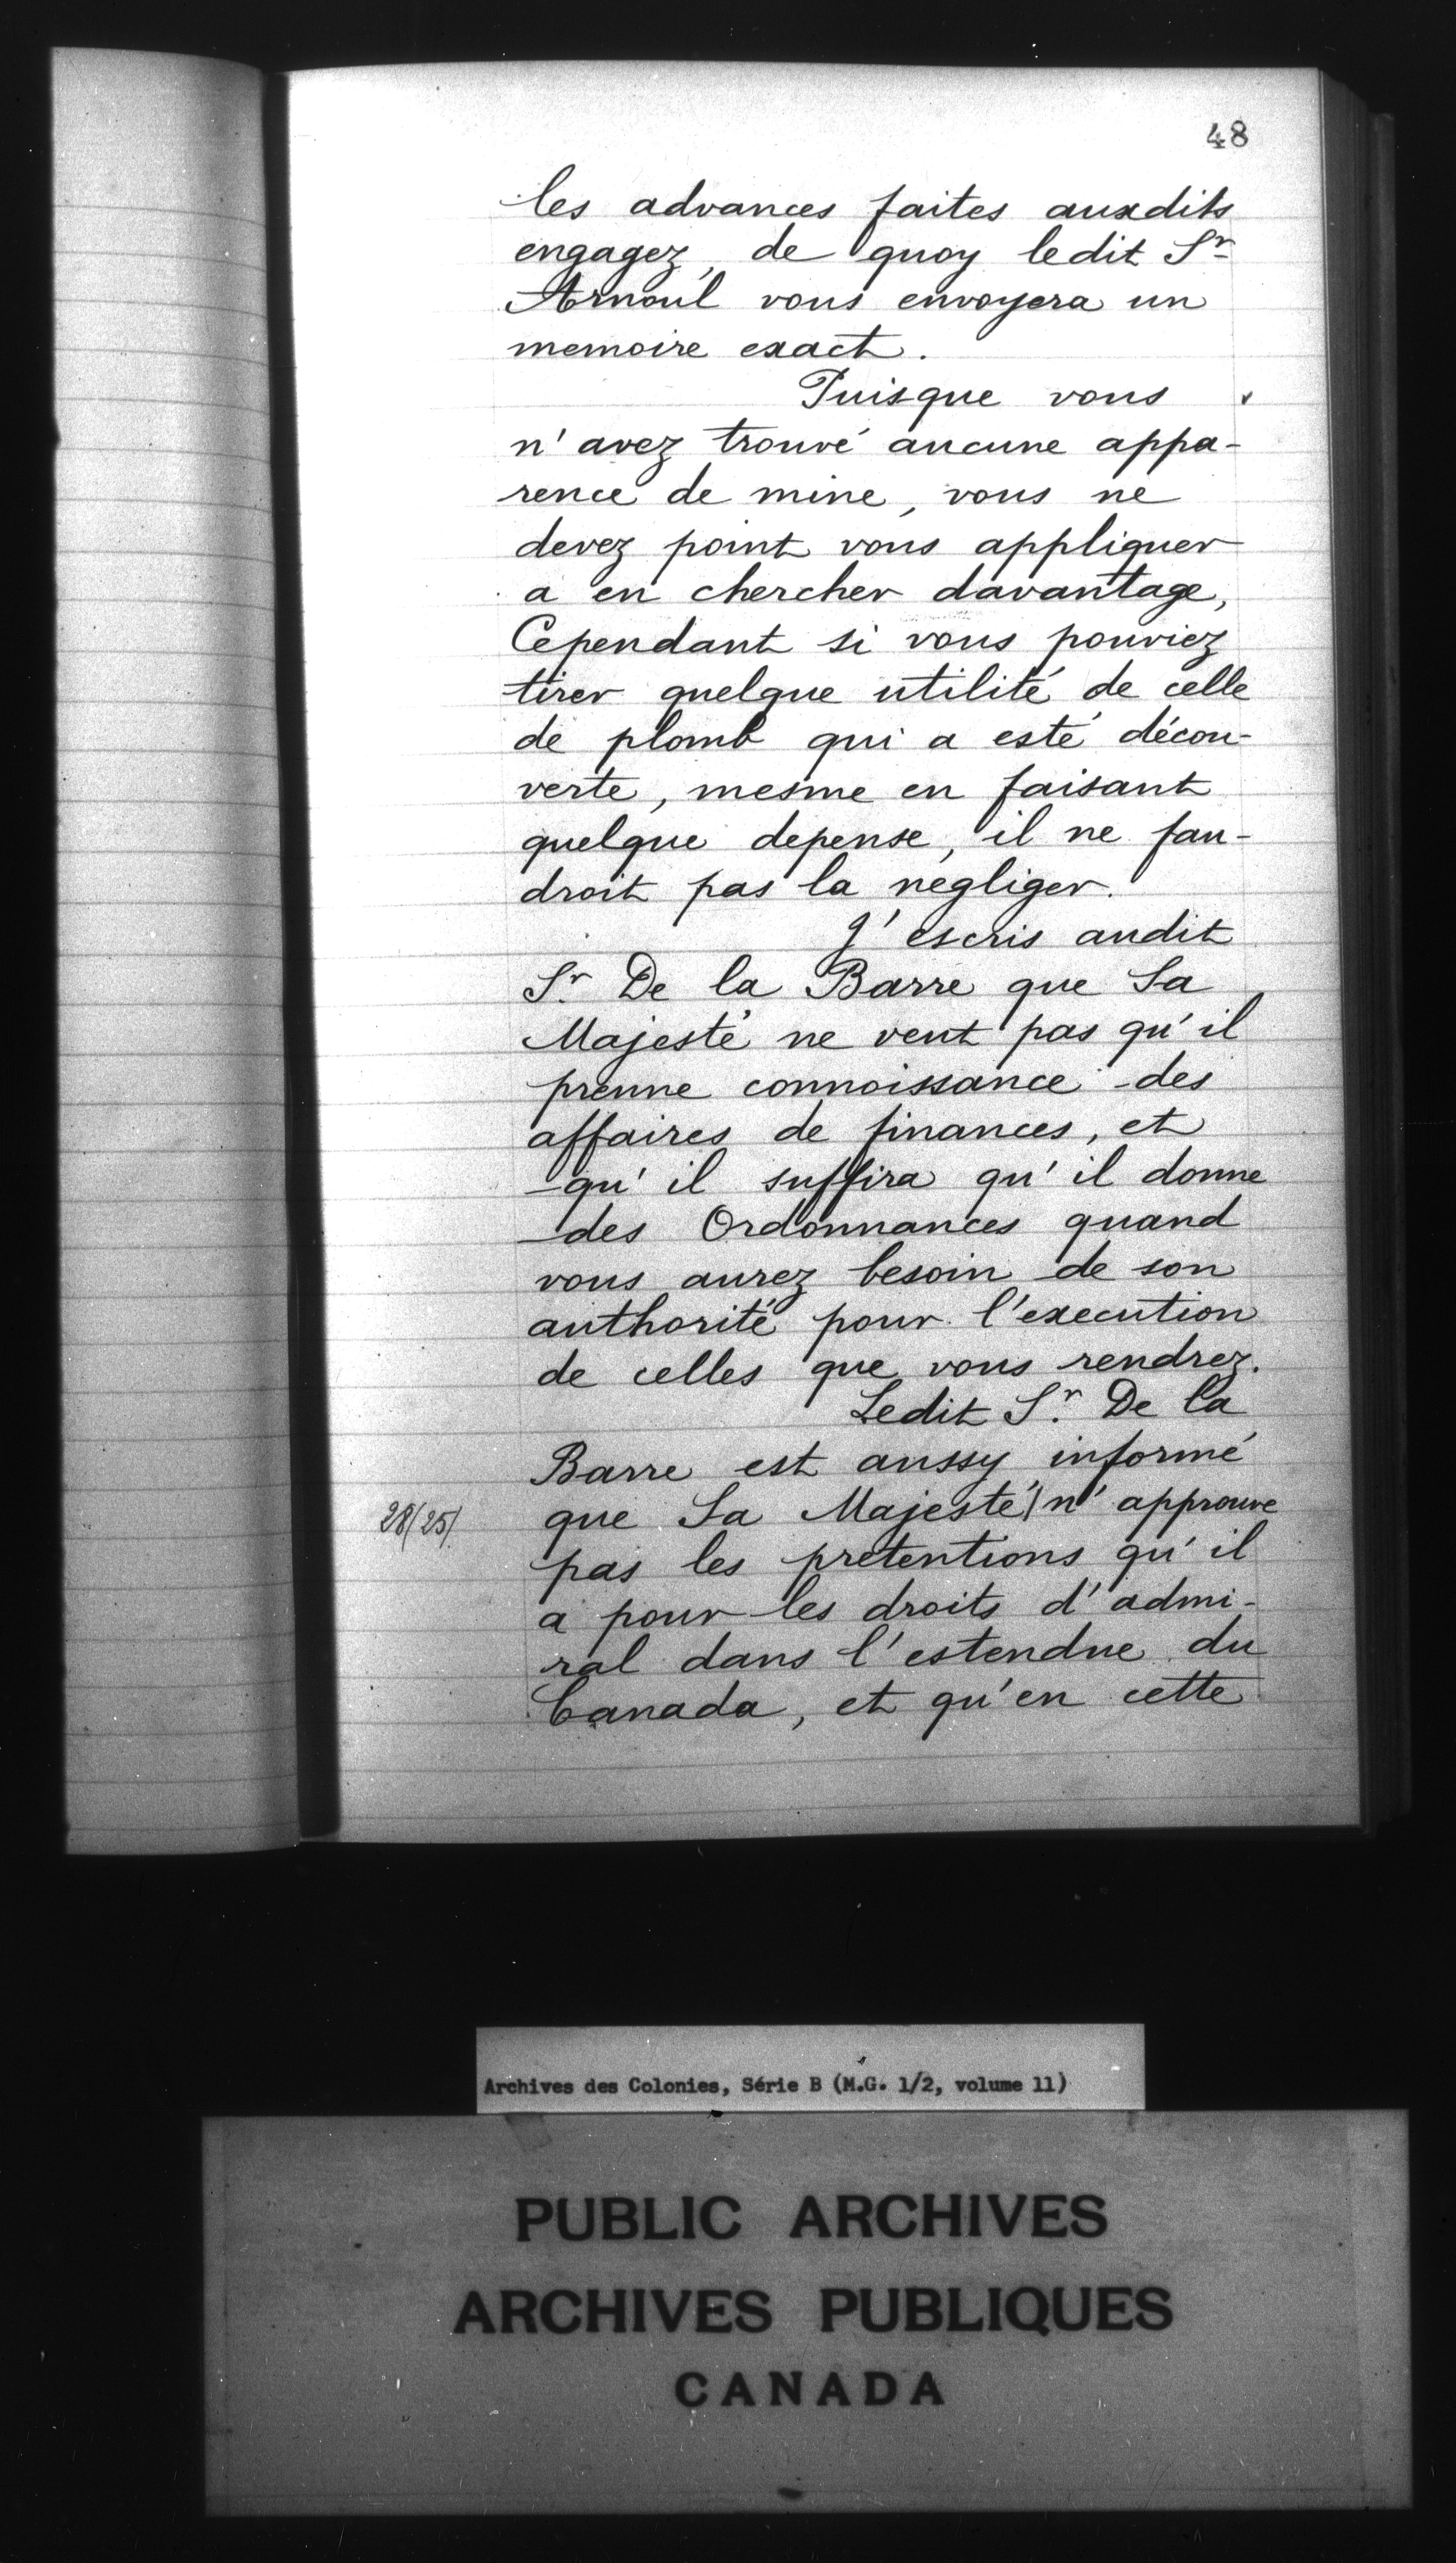 48
les advances faites auxdits
engagez, de quoy ledit Sr
Arnoul vous envoyera un
memoire exact.
Puisque vous
n'avez trouvé aucune appa-
rence de mine, vous ne
devez point vous appliquer
a en chercher davantage,
Cependant si vous pouviez
tirer quelque utilité de celle
de plomb qui a esté décou-
verte, mesme en faisant
quelque depense, il ne fau-
droit pas la negliger.
J'escris audit
Sr. De la Barre que Sa
Majesté ne veut pas qu'il
prenne connoissance des
affaires de finances, et
qu'il suffira qu'il donne
des Ordonnances quand
vous aurez besoin de son
authorité pour l'execution
de celles que vous rendrez.
Ledit Sr. De la
Barre est aussy informé
28/25/. que Sa Majesté/n'approuve
pas les pretentions qu'il
a pour les droits d'admi-
ral dans l'estendue du
Canada, et qu'en cette
Archives des Colonies, Série B (M.G. 1/2, volume 11)
PUBLIC ARCHIVES
ARCHIVES PUBLIQUES
CANADA